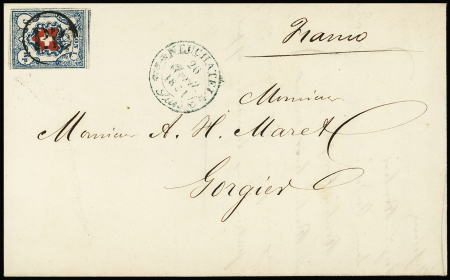 Franco
NEUCHATEL
26
1851
Monsieur
Monsieur A. H. Maret
Gorgier